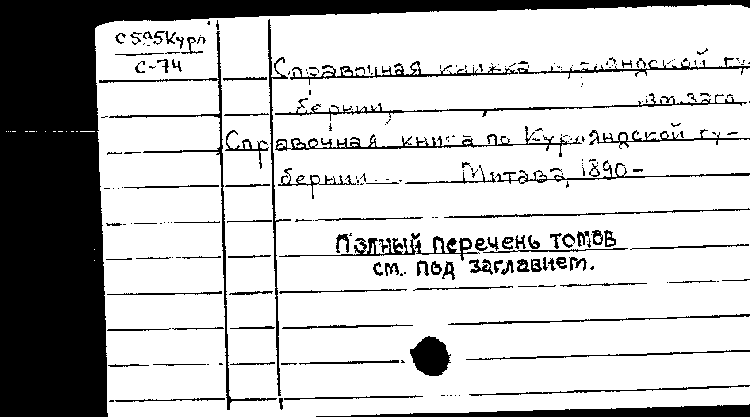 С595Курл
С-74
Справочная книжка Курляндской гу-
бернии, зм. загл.
Справочная книга по Курляндской гу-
бернии... Митава, 1890-
Полный перечень томов
см. под заглавием.